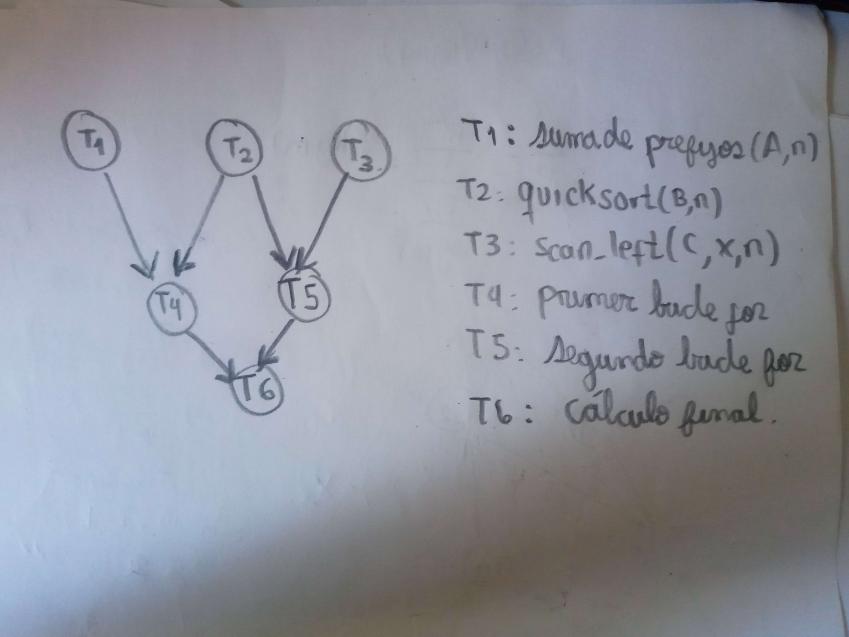 T1
T2
T3
T4
T5
T6
T1: suma de prefijos (A,n)
T2: quicksort(B,n)
T3: scan_left(C,x,n)
T4: primer bucle for
T5: segundo bucle for
T6: cálculo final.